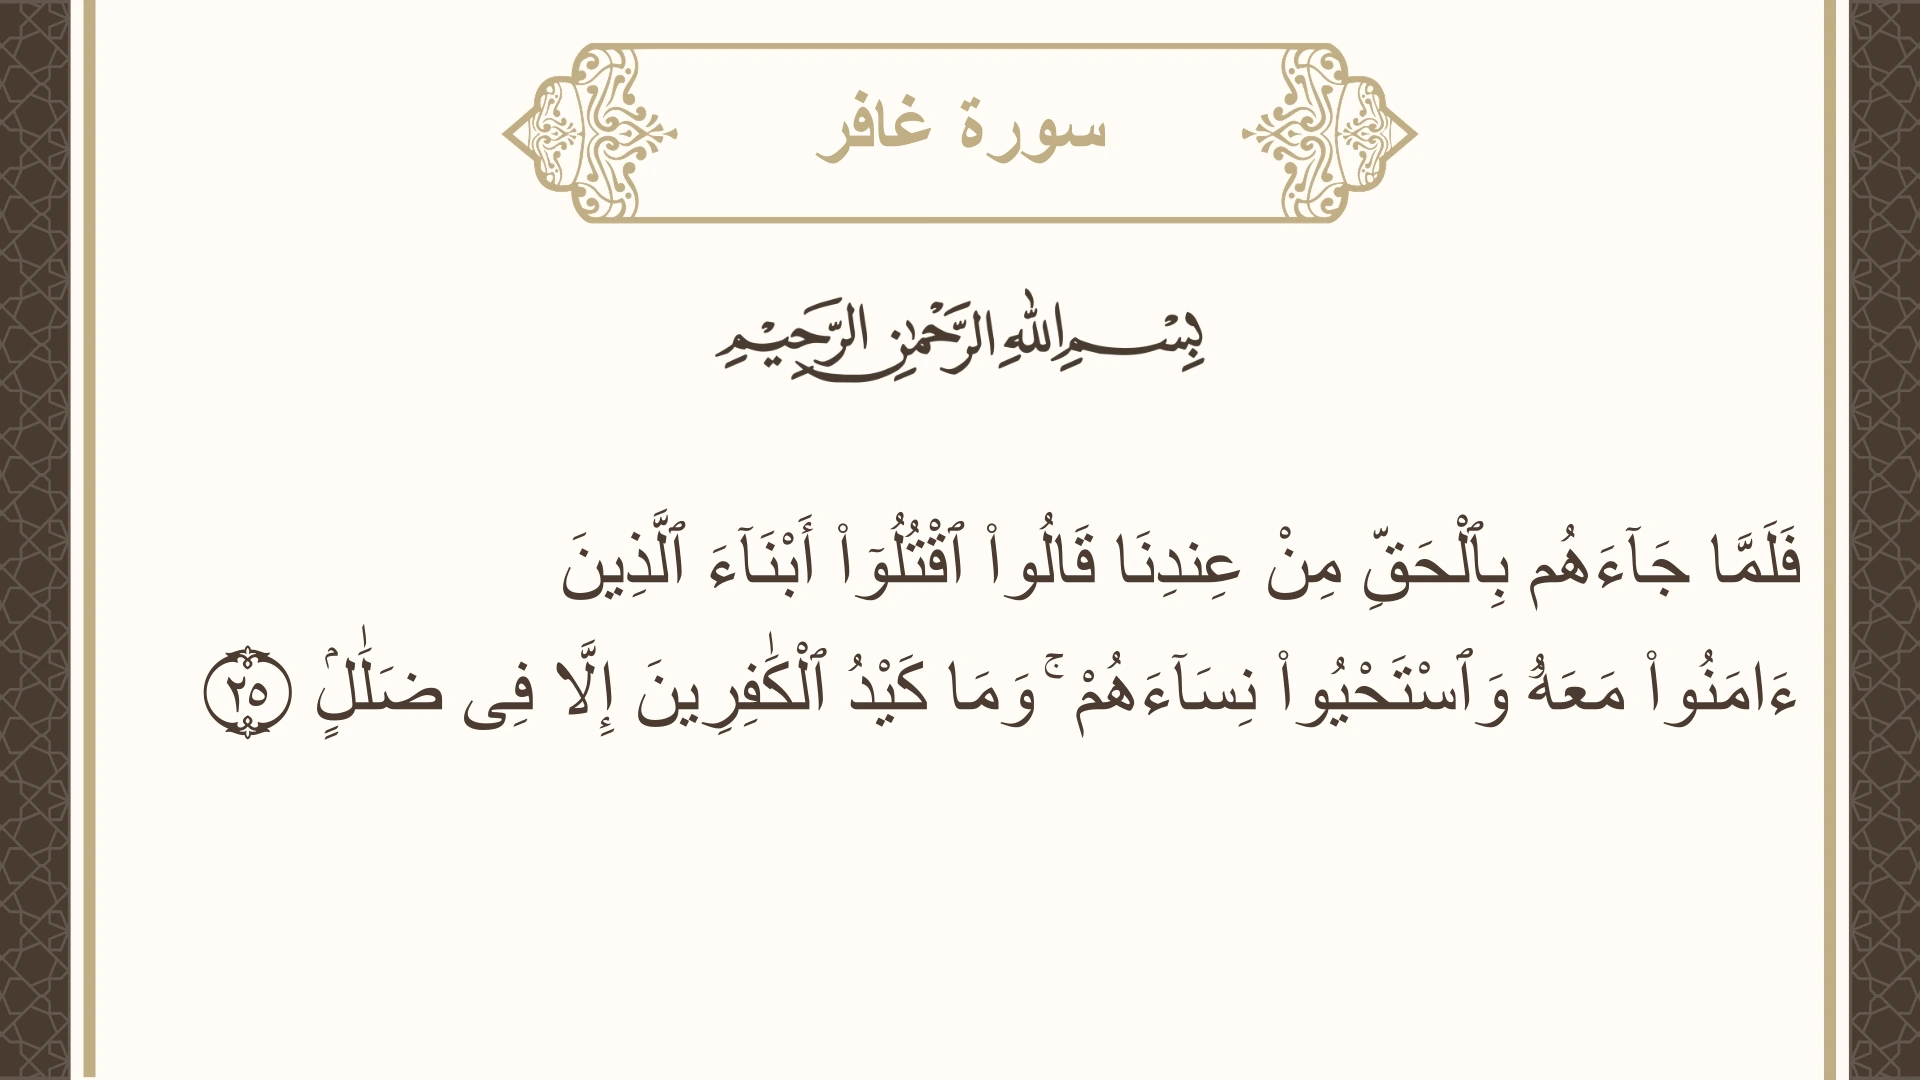 سورة غافر
بِسْمِ اللهِ الرَّحْمٰنِ الرَّحِيْمِ
فَلَمَّا جَآءَهُم بِٱلْحَقِّ مِنْ عِندِنَا قَالُوا۟ ٱقْتُلُوٓا۟ أَبْنَآءَ ٱلَّذِينَ
ءَامَنُوا۟ مَعَهُۥ وَٱسْتَحْيُوا۟ نِسَآءَهُمْ ۚ وَمَا كَيْدُ ٱلْكَٰفِرِينَ إِلَّا فِى ضَلَٰلٍۢ ٢٥